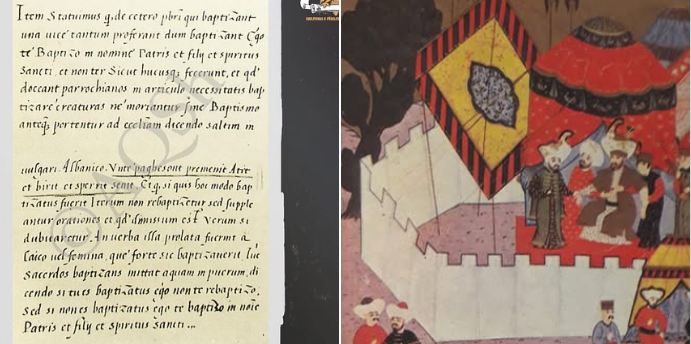 Item Statuimus q. de cetero pbri qui baptizant
una vice tantum proferant dum baptizant Ego
te Baptizo in nomine Patris et filij et spiritus
Sancti, et non ter Sicut hucusq; fecerunt, et qd'
doceant parrochianos in articulo necessitatis bap
tizare creaturas ne' moriantur sine Baptismo
anteq; portentur ad eccliam dicendo saltim in
vulgari. Albanico. Vnte paghesont premenit Atit
et birit et sperit senit. Et q. si quis hoc modo bap
tizatus fuerit Iterum non rebaptizetur sed supple
antur orationes et qd' omissum est Verum si
dubitaretur. An verba illa prolata fuerint à
laico vel femina, que' forte sic baptizaverit tuc
Sacerdos baptizans mittat aquam in puerum, di
cendo si tu es baptizatus ego non te rebaptizo,
sed si non es baptizatus ego te baptizo in noie
Patris et filij et spiritus Sancti...
© AQSH